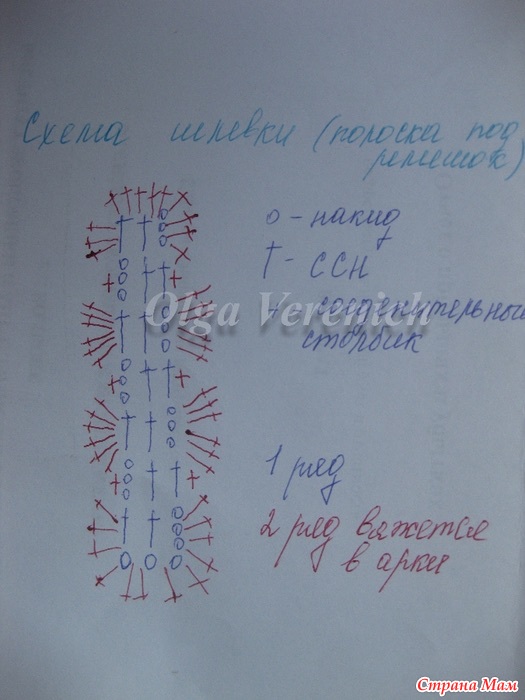 Схема шлевки (полоска под
ремешок)
о - накид
† - ССН
+ - соеденительный
столбик
Olga Verenich
1 ряд
2 ряд вяжется
в арки
Страна Мам